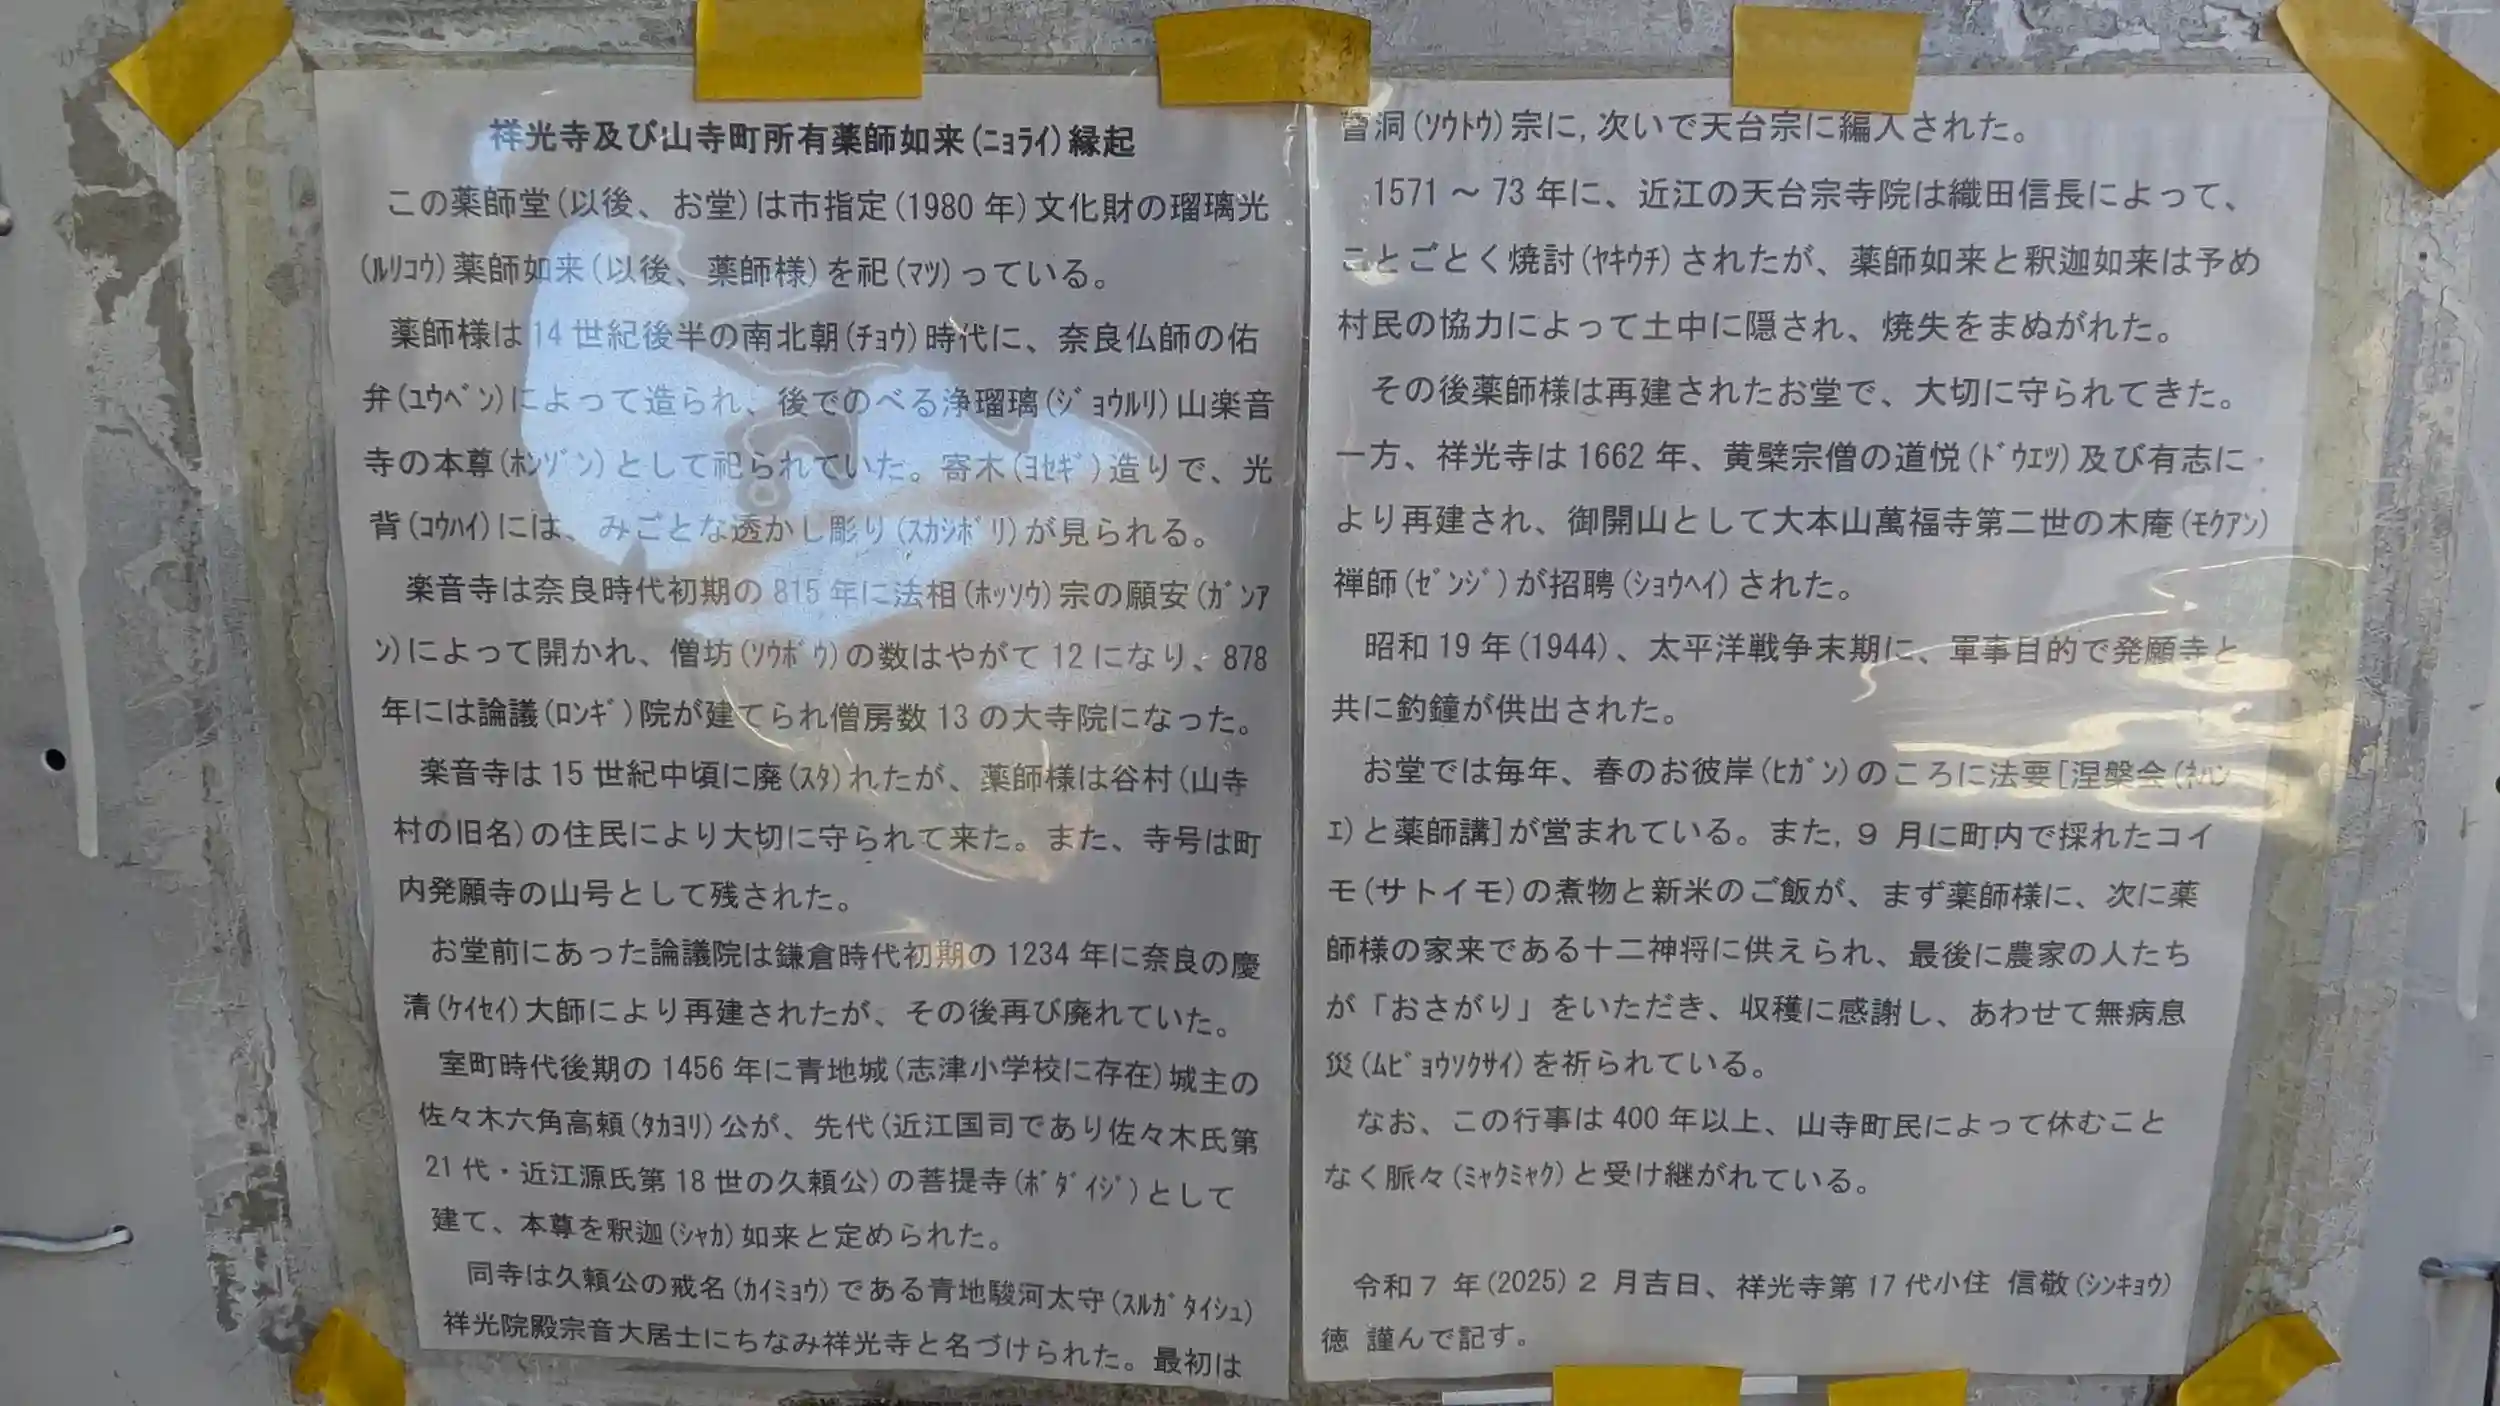 祥光寺及び山寺町所有薬師如来(ﾆｮﾗｲ)縁起
この薬師堂(以後、お堂)は市指定(1980 年)文化財の瑠璃光
(ﾙﾘｺｳ)薬師如来(以後、薬師様)を祀(ﾏﾂ)っている。
薬師様は 14 世紀後半の南北朝(ﾁｮｳ)時代に、奈良仏師の佑
弁(ﾕｳﾍﾞﾝ)によって造られ、後でのべる浄瑠璃(ｼﾞｮｳﾙﾘ)山楽音
寺の本尊(ﾎﾝｿﾞﾝ)として祀られていた。寄木(ﾖｾｷﾞ)造りで、光
背(ｺｳﾊｲ)には、みごとな透かし彫り(ｽｶｼﾎﾞﾘ)が見られる。
楽音寺は奈良時代初期の 815 年に法相(ﾎｯｿｳ)宗の願安(ｶﾞﾝｱ
ﾝ)によって開かれ、僧坊(ｿｳﾎﾞｳ)の数はやがて 12 になり、878
年には論議(ﾛﾝｷﾞ)院が建てられ僧房数 13 の大寺院になった。
楽音寺は 15 世紀中頃に廃(ｽﾀ)れたが、薬師様は谷村(山寺
村の旧名)の住民により大切に守られて来た。また、寺号は町
内発願寺の山号として残された。
お堂前にあった論議院は鎌倉時代初期の 1234 年に奈良の慶
清(ｹｲｾｲ)大師により再建されたが、その後再び廃れていた。
室町時代後期の 1456 年に青地城(志津小学校に存在)城主の
佐々木六角高頼(ﾀｶﾖﾘ)公が、先代(近江国司であり佐々木氏第
21 代・近江源氏第 18 世の久頼公)の菩提寺(ﾎﾞﾀﾞｲｼﾞ)として
建て、本尊を釈迦(ｼｬｶ)如来と定められた。
同寺は久頼公の戒名(ｶｲﾐｮｳ)である青地駿河太守(ｽﾙｶﾞﾀｲｼｭ)
祥光院殿宗音大居士にちなみ祥光寺と名づけられた。最初は
曹洞(ｿｳﾄｳ)宗に,次いで天台宗に編入された。
1571 ～ 73 年に、近江の天台宗寺院は織田信長によって、
ことごとく焼討(ﾔｷｳﾁ)されたが、薬師如来と釈迦如来は予め
村民の協力によって土中に隠され、焼失をまぬがれた。
その後薬師様は再建されたお堂で、大切に守られてきた。
一方、祥光寺は 1662 年、黄檗宗僧の道悦(ﾄﾞｳｴﾂ)及び有志に
より再建され、御開山として大本山萬福寺第二世の木庵(ﾓｸｱﾝ)
禅師(ｾﾞﾝｼﾞ)が招聘(ｼｮｳﾍｲ)された。
昭和 19 年(1944)、太平洋戦争末期に、軍事目的で発願寺と
共に釣鐘が供出された。
お堂では毎年、春のお彼岸(ﾋｶﾞﾝ)のころに法要[涅槃会(ﾈﾊﾝ
ｴ)と薬師講]が営まれている。また,９ 月に町内で採れたコイ
モ(サトイモ)の煮物と新米のご飯が、まず薬師様に、次に薬
師様の家来である十二神将に供えられ、最後に農家の人たち
が「おさがり」をいただき、収穫に感謝し、あわせて無病息
災(ﾑﾋﾞｮｳｿｸｻｲ)を祈られている。
なお、この行事は 400 年以上、山寺町民によって休むこと
なく脈々(ﾐｬｸﾐｬｸ)と受け継がれている。
令和７ 年(2025)２ 月吉日、祥光寺第 17 代小住 信敬(ｼﾝｷｮｳ)
徳 謹んで記す。